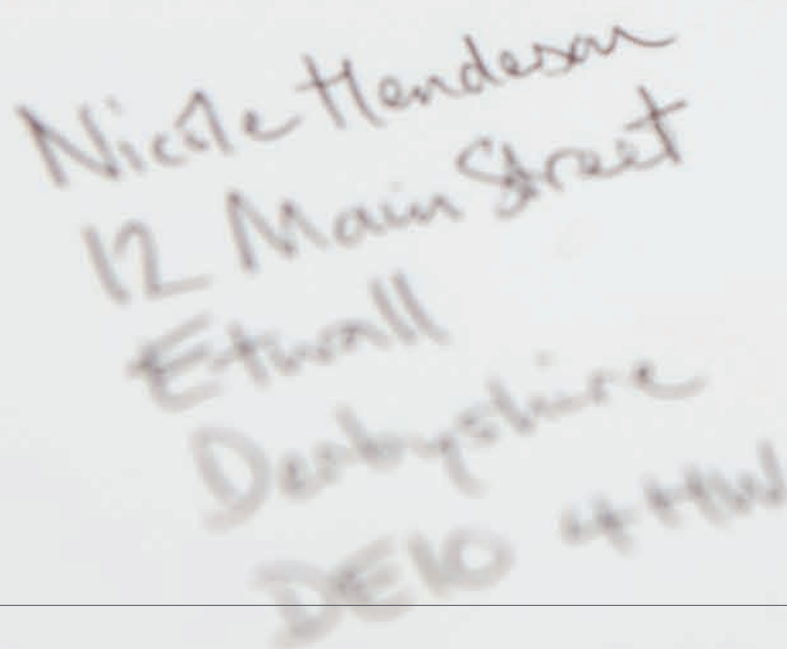 Nicole Henderson
12 Main Street
Etwall
Derbyshire
DE10 4HW